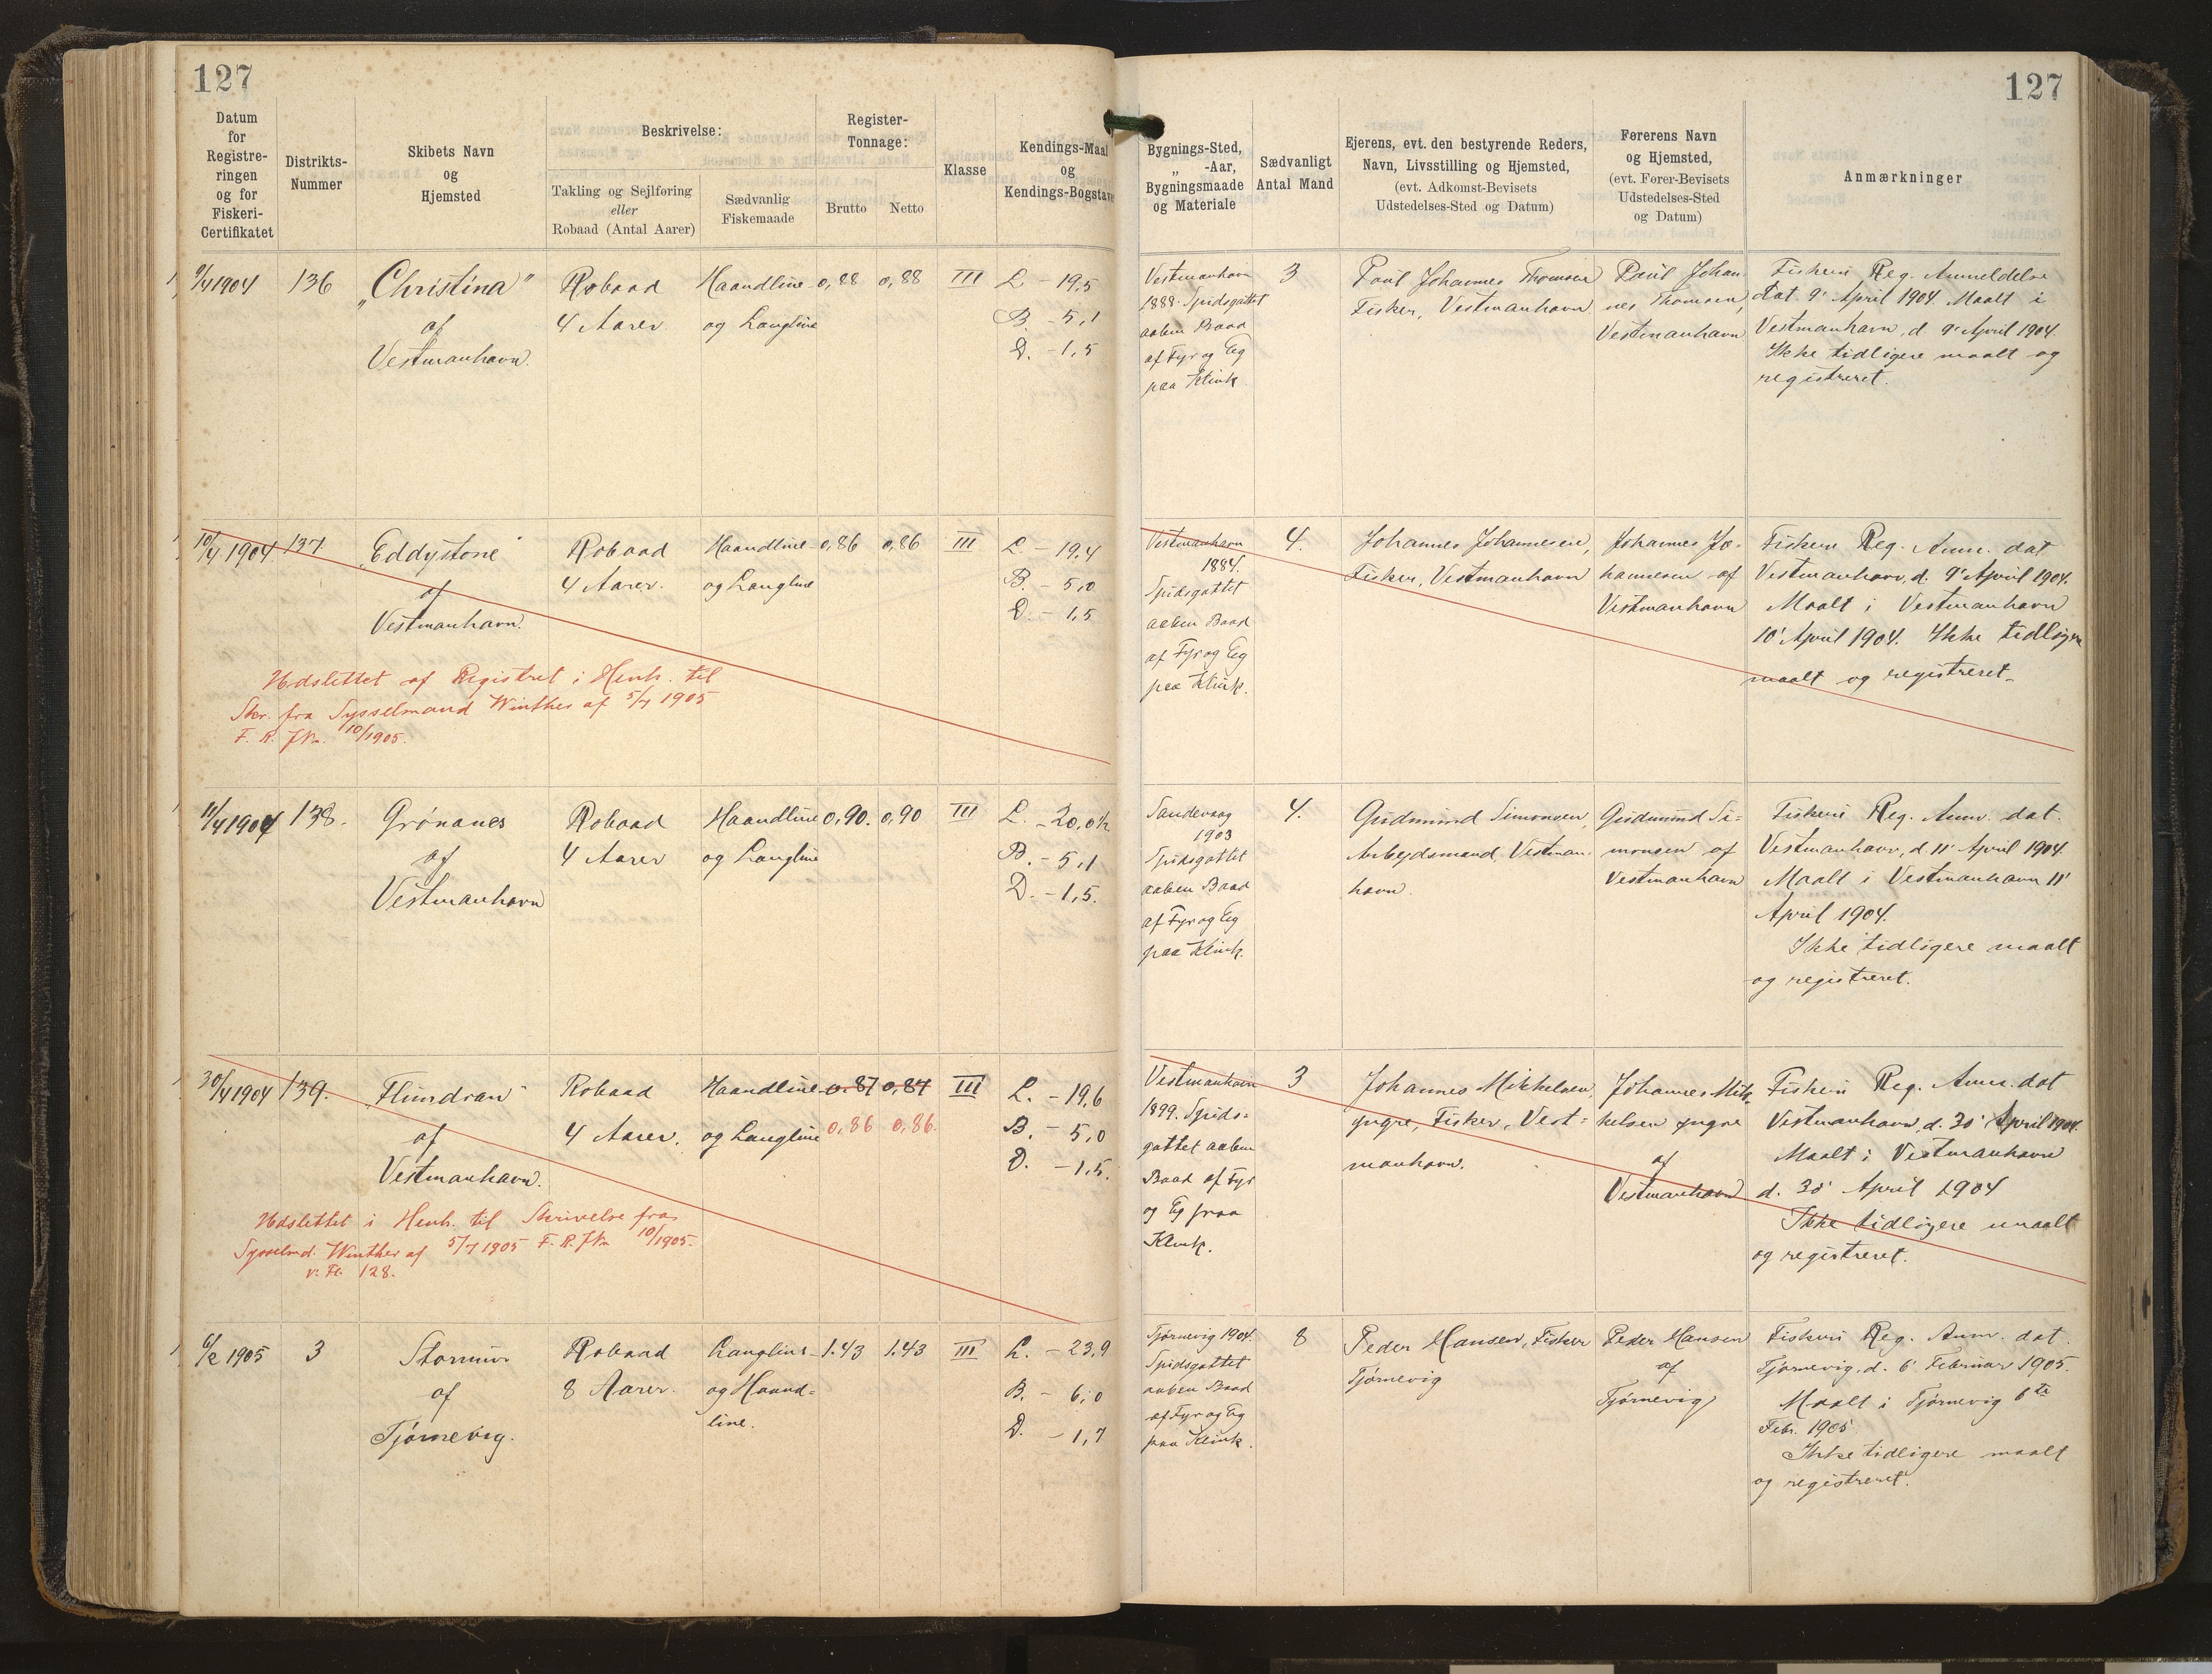 127
127
Datum
for
Registre-
ringen
og for
Fiskeri-
Certifikatet
Distrikts-
Nummer
Skibets Navn
og
Hjemsted
Beskrivelse:
Takling og Sejlføring
eller
Robaad (Antal Aarer)
Sædvanlig
Fiskemaade
Register-
Tonnage:
Brutto
Netto
Klasse
Kendings-Maal
og
Kendings-Bogstaver
Bygnings-Sted,
„ -Aar,
Bygningsmaade
og Materiale
Sædvanligt
Antal Mand
Ejerens, evt. den bestyrende Reders,
Navn, Livsstilling og Hjemsted,
(evt. Adkomst-Bevisets
Udstedelses-Sted og Datum)
Førerens Navn
og Hjemsted,
(evt. Fører-Bevisets
Udstedelses-Sted
og Datum)
Anmærkninger
9/4 1904
136
„Christina"
af
Vestmanhavn.
Robaad
4 Aarer
Haandline
og Langline
0,88
0,88
III
L - 19,5
B. - 5,1
D. - 1,5
Vestmanhavn
1888. Spidsgattet
aaben Baad
af Fyr og Eg
paa Klink
3
Poul Johannes Thomsen
Fisker, Vestmanhavn
Poul Johan-
nes Thomsen,
Vestmanhavn
Fiskeri Reg. Anmeldelse
dat. 9' April 1904. Maalt i
Vestmanhavn, d. 9' April 1904.
Ikke tidligere maalt og
registreret.
10/4 1904
137
„Eddystone"
af
Vestmanhavn.
Robaad
4 Aarer.
Haandline
og Langline
0,86
0,86
III
L - 19,4
B. - 5,0
D. - 1,5
Udslettet af Registret i Henh. til
Skr. fra Sysselmand Winther af 5/7 1905
F. R. JNr. 10/1905.
Vestmanhavn
1884.
Spidsgattet
aaben Baad
af Fyr og Eg
paa Klink.
4.
Johannes Johannesen,
Fisker, Vestmanhavn
Johannes Jo-
hannesen af
Vestmanhavn
Fiskeri Reg. Anm. dat
Vestmanhavn, d. 9' April 1904.
Maalt i Vestmanhavn
10' April 1904. Ikke tidligere
maalt og registreret.
11/4 1904
138.
Grónanes
af
Vestmanhavn
Robaad
4 Aarer
Haandline
og Langline
0,90.
0,90
III
L. - 20,0½
B. - 5,1
D. - 1,5.
Sandevaag
1903
Spidsgattet
aaben Baad
af Fyr og Eg
paa Klink.
4.
Gudmund Simonsen,
Arbejdsmand, Vestman-
havn.
Gudmund Si=
monsen af
Vestmanhavn
Fiskeri Reg. Anm. dat.
Vestmanhavn, d. 11' April 1904.
Maalt i Vestmanhavn 11'
April 1904.
Ikke tidligere maalt
og registreret.
30/4 1904
139.
„Flundran"
af
Vestmanhavn.
Robaad
4 Aarer.
Haandline
og Langline
0,87
0,87
0,86
0,86.
III
L. - 19,6
B. - 5,0
D. - 1,5.
Udslettet i Henh. til Skrivelse fra
Sysselmd. Winther af 5/7 1905 F. R. JNr 10/1905.
v. Fl. 128.
Vestmanhavn
1899. Spids=
gattet aaben
Baad af Fyr
og Eg paa
Klink.
3
Johannes Mikkelsen,
yngre, Fisker, Vest=
manhavn.
Johannes Mik-
kelsen yngre
af
Vestmanhavn
Fiskeri Reg. Anm. dat
Vestmanhavn, d. 30' April 1904.
Maalt i Vestmanhavn
d. 30' April 1904
Ikke tidligere maalt
og registreret.
6/2 1905
3
Stormur
af
Tjørnevig.
Robaad
8 Aarer.
Langline
og Haand=
line.
1.43
1.43
III
L. - 23,9
B. - 6,0
D. - 1,7
Tjørnevig 1904.
Spidsgattet
aaben Baad
af Fyr og Eg
paa Klink.
8
Peder Hansen, Fisker
Tjørnevig
Peder Hansen
af
Tjørnevig
Fiskeri Reg. Anm. dat.
Tjørnevig, d. 6' Februar 1905.
Maalt i Tjørnevig 6te
Febr. 1905
Ikke tidligere maalt
og registreret.